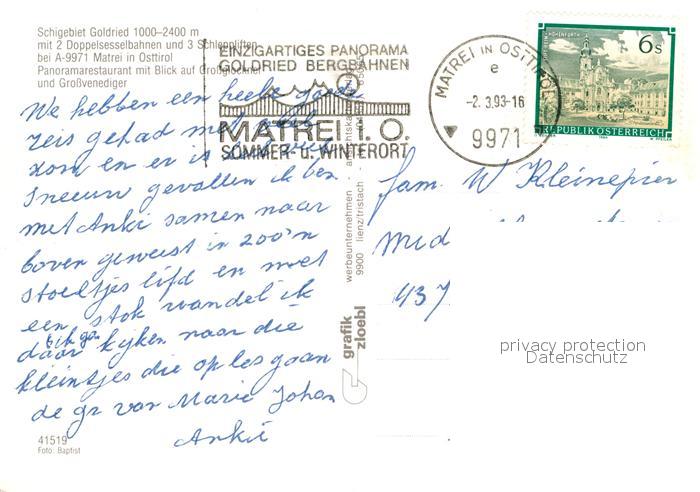 Schigebiet Goldried 1000–2400 m
mit 2 Doppelsesselbahnen und 3 Schleppliften
bei A-9971 Matrei in Osttirol
Panoramarestaurant mit Blick auf Großglockner
und Großvenediger
EINZIGARTIGES PANORAMA
GOLDRIED BERGBAHNEN
MATREI i. O.
SOMMER- u. WINTERORT
MATREI IN OSTTIROL
e
-2. 3.93-16
9971
6 S
REPUBLIK ÖSTERREICH
We hebben een heele goede
reis gehad met
kom en er is veel
sneeuw gevallen ik ben
met Anki samen naar
boven geweest in zoo'n
stoeltjes lift en met
een stok wandel ik
ik ga
daar kijken naar die
kleintjes die op les gaan
de gr van Marie Johan
Ankie
fam. W Kleinepier
Mid
437
werbeunternehmen
9900 lienz/tristach
grafik
zloebl
privacy protection
Datenschutz
41519
Foto: Baptist